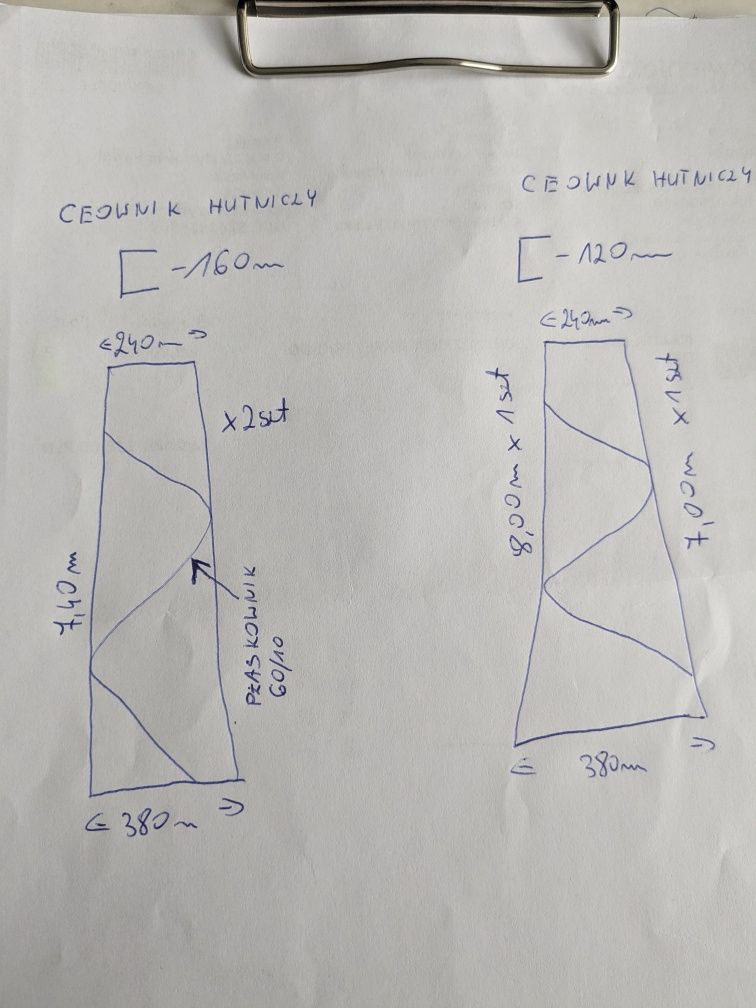 CEOWNIK HUTNICZY
[ -160m
<240m>
x2szt
7,40m
PŁASKOWNIK
60/10
<380m>
CEOWNK HUTNICZY
[ -120m
<240mm>
8,00m x 1szt
7,00m x 1szt
<380m>